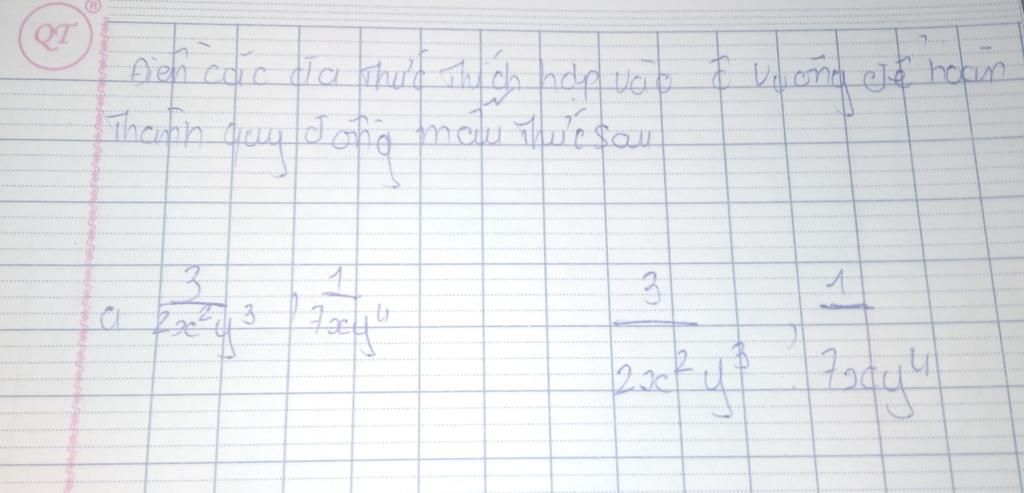 QT
Điền các đa thức thích hợp vào ô vuông để hoàn
thành quy đồng mẫu thức sau
a 3/2x²y³ , 1/7xy⁴ 3/2x²y³ , 1/7xy⁴